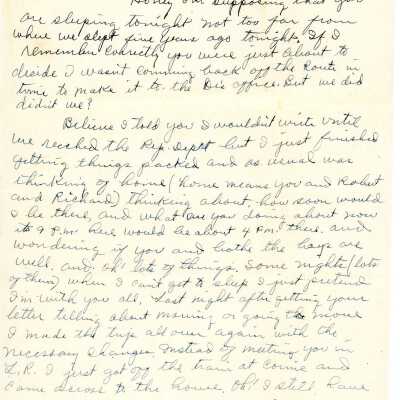 Honey am supposing that you
are sleeping tonight not too far from
where we slept five years ago tonight. If I
remember correctly you were just about to
decide I wasn't comming back off the Route in
time to make it to the Drs office. But we did
didn't we?
Believe I told you I wouldn't write until
we reached the Rep. Depot but I just finished
getting things packed and as usual was
thinking of home (home means you and Robert
and Richard) thinking about, how soon would
I be there, and what are you doing about now
its 9 P.M. here would be about 4 P.M. there. and
wondering if you and bothe the boys are
well. and, oh! lots of things. Some nights (lots
of them) when I can't get to sleep I just pretend
I'm with you all. Last night after getting your
letter telling about moving or going to move
I made the trip all over again with the
necessary changes. Instead of meeting you in
L.R. I just got off the train at and
came across to the house. Oh! I still have